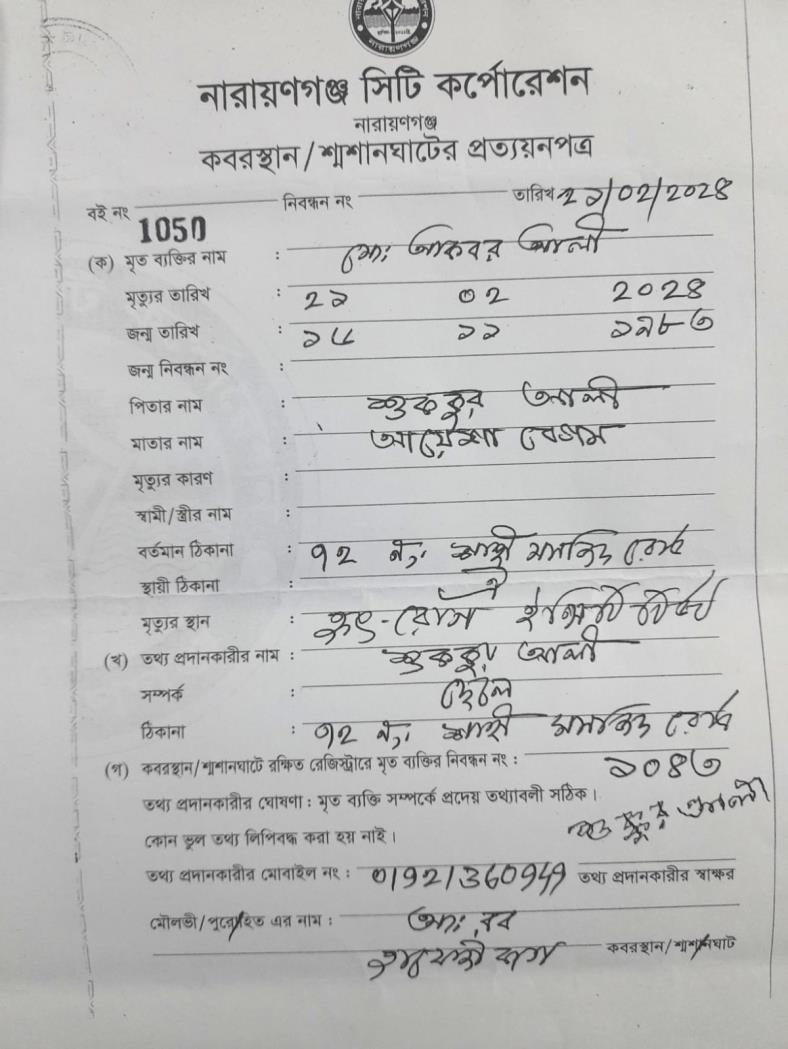 নারায়ণগঞ্জ
নারায়ণগঞ্জ সিটি কর্পোরেশন
নারায়ণগঞ্জ
কবরস্থান/শ্মশানঘাটের প্রত্যয়নপত্র
বই নং 1050 নিবন্ধন নং তারিখ ২১/০২/২০২৪
(ক) মৃত ব্যক্তির নাম : মোঃ আকবর আলী
মৃত্যুর তারিখ : ২১ ০২ ২০২৪
জন্ম তারিখ : ১৫ ১১ ১৯৮৩
জন্ম নিবন্ধন নং :
পিতার নাম : শুককুর আলী
মাতার নাম : আয়েশা বেগম
মৃত্যুর কারণ :
স্বামী/স্ত্রীর নাম :
বর্তমান ঠিকানা : ৭২ নং রোড
স্থায়ী ঠিকানা :
মৃত্যুর স্থান :
(খ) তথ্য প্রদানকারীর নাম : শুককুর আলী
সম্পর্ক :
ঠিকানা : ৭২ নং রোড
(গ) কবরস্থান/শ্মশানঘাটে রক্ষিত রেজিস্ট্রারে মৃত ব্যক্তির নিবন্ধন নং : ১০৪৩
তথ্য প্রদানকারীর ঘোষণা : মৃত ব্যক্তি সম্পর্কে প্রদেয় তথ্যাবলী সঠিক।
কোন ভুল তথ্য লিপিবদ্ধ করা হয় নাই।
তথ্য প্রদানকারীর মোবাইল নং : তথ্য প্রদানকারীর স্বাক্ষর
মৌলভী/পুরোহিত এর নাম : আঃ রব
কবরস্থান/শ্মশানঘাট